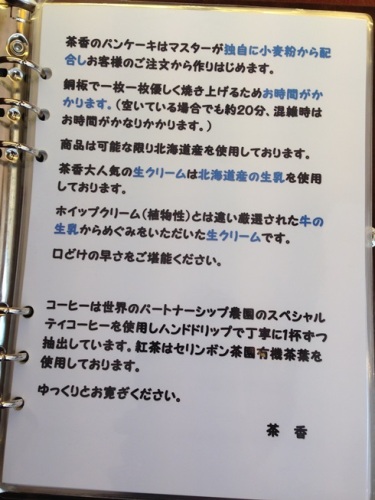 茶香のパンケーキはマスターが独自に小麦粉から配
合しお客様のご注文から作りはじめます。
銅板で一枚一枚優しく焼き上げるためお時間がか
かります。(空いている場合でも約20分、混雑時は
お時間がかなりかかります。)
商品は可能な限り北海道産を使用しております。
茶香大人気の生クリームは北海道産の生乳を使用
しております。
ホイップクリーム(植物性)とは違い厳選された牛の
生乳からめぐみをいただいた生クリームです。
口どけの早さをご堪能ください。
コーヒーは世界のパートナーシップ農園のスペシャル
テイコーヒーを使用しハンドドリップで丁寧に1杯ずつ
抽出しています。紅茶はセリンボン茶園有機茶葉を
使用しております。
ゆっくりとお寛ぎください。
茶 香